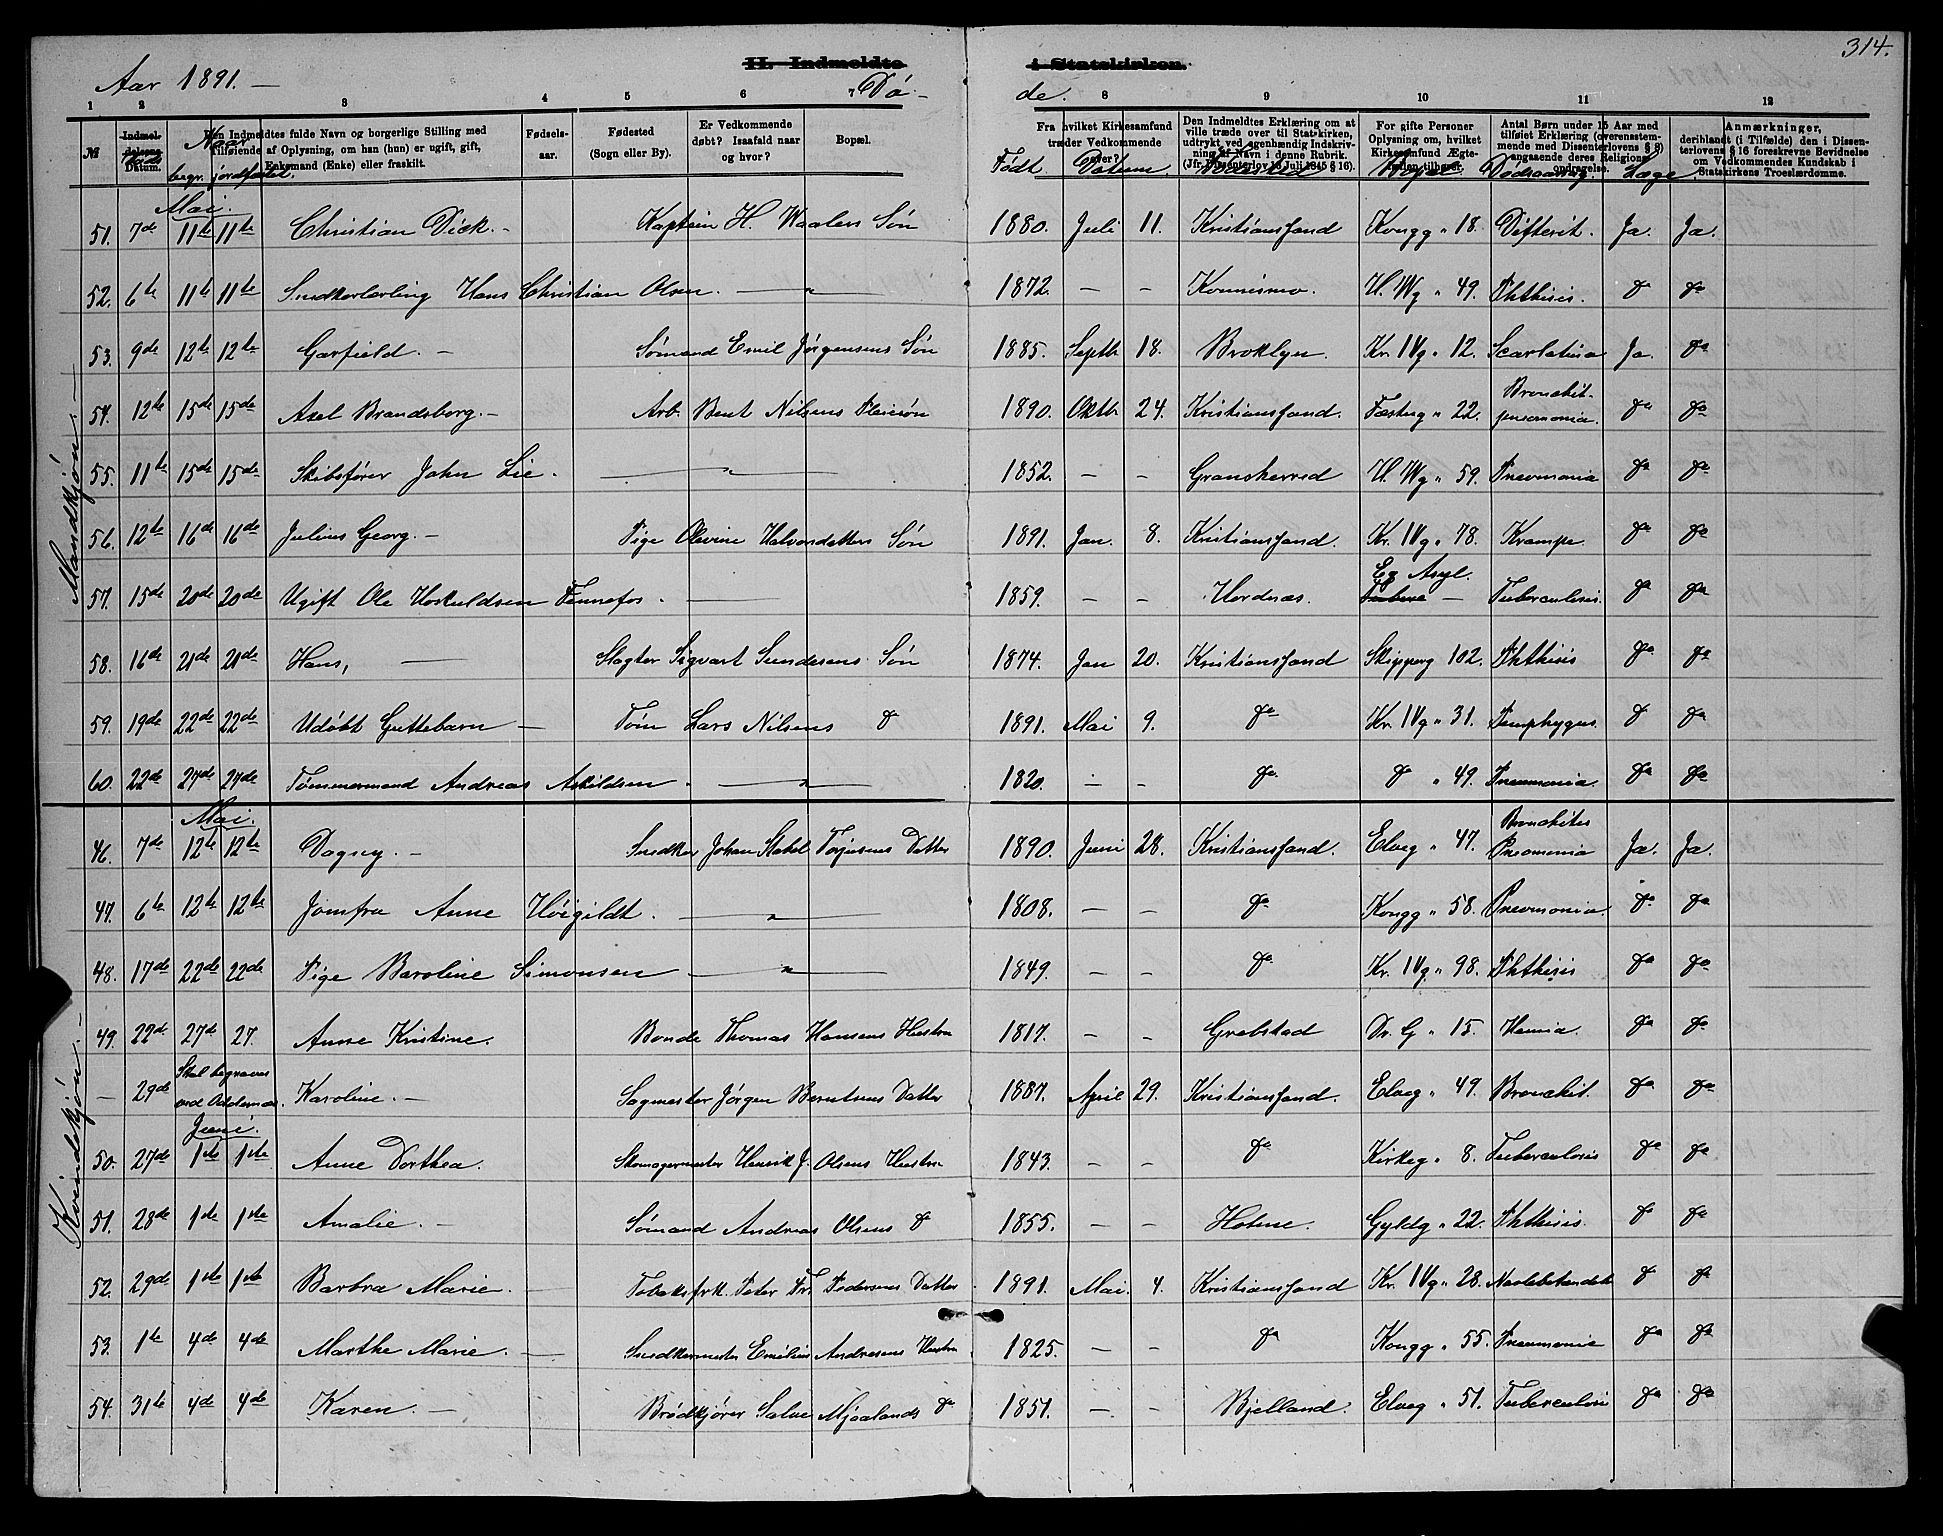 314.
Aar 1891. —
II. Indmeldte i Statskirken.
Dö- de.
1 2 3 4 5 6 7 8 9 10 11 12
№ Indmeldelsens Datum. Den Indmeldtes fulde Navn og borgerlige Stilling med Tilføiende af Oplysning, om han (hun) er ugift, gift, Enkemand (Enke) eller fraskilt. Fødselsaar. Fødested (Sogn eller By). Er Vedkommende døbt? Isaafald naar og hvor? Bopæl. Fra hvilket Kirkesamfund træder Vedkommende over? Den Indmeldtes Erklæring om at ville træde over til Statskirken, udtrykt ved egenhændig Indskrivning af Navn i denne Rubrik. (Jfr. Dissenterlov 16 Juli 1845 § 16). For gifte Personer Oplysning om, hvilket Kirkesamfund Ægtefællen tilhører. Antal Børn under 15 Aar med tilføiet Erklæring (overensstemmende med Dissenterlovens § 8) angaaende deres Religions opdragelse. Anmærkninger, deriblandt (i Tilfælde) den i Dissenterlovens § 16 foreskrevne Bevidnelse om Vedkommendes Kundskab i Statskirkens Troeslærdomme.
Naar
begr. jordfæstet.
Født Datum Dödsaarsag Læge
Mandkjön. —
Mai.
51. 7de 11te 11te Christian Dick. — Kaptein H. Waalers Sön 1880. Juli 11. Kristianssand Kongg " 18. Difterit. Ja. Ja.
52. 6te 11te 11te Snedkerlærling Hans Christian Olsen. — " — 1872. — — Konnismo. H. Wg " 49. Phthisis. Do Do
53. 9de 12te 12te Garfield. — Sömand Emil Jörgensens Sön 1885. Septb 18. Broklyn. Kr. IVg " 12. Scarlatina Ja. Do
54. 12te 15de 15de Axel Brandsborg. — Arb. Bent Nilsens Pleiesön 1890. Oktb 24. Kristianssand. Fæstng " 22. Bronchit-pneumonia. Do Do
55. 11te 15de 15de Skibsförer John Lie. — " — 1852. — — Gransherred H. Wg " 59. Pneomonia Do Do
56. 12te 16de 16de Julius Georg. — Pige Olevine Halvorsdatters Sön 1891. Jan. 8. Kristianssand. Kr. IVg " 78. Krampe. Do Do
57. 15de 20de 20de Ugift Ole Hoskuldsen Fennefos. — 1859. — — Hordnæs. Eg Asyl. — Tuberculosis. Do Do
58. 16de 21de 21de Hans, — Slagter Sigvart Sundesens Sön 1874. Jan 20. Kristianssand Skipperg 102. Phthisis Do Do
59. 19de 22de 22de Udöbt Guttebarn — Töm Lars Nilsens Do 1891. Mai 9. Do Kr. IVg " 31. Pemphygus. Do Do
60. 22de 27de 27de Tömmermand Andreas Askildsen. — " — 1820. — — Do. Do " 49. Pneumonia. Do Do
Kvindekjön. —
Mai.
46. 7de 12te 12te Dagny. — Snedker Johan Stakel Torjusens Datter 1890. Juni 28. Kristianssand. Elveg " 47. Bronchites Pneomonia Ja. Ja.
47. 6te 12te 12te Jomfru Anne Höigildt. — " — 1808. — — Do Kongg " 58. Pneomonia. Do Do
48. 17de 22de 22de Pige Baroline Simonsen — " — 1849. — — Do Kr. IVg " 98. Phthisis Do Do
49. 22de 27de 27. Anne Kristine. Bonde Thomas Hansens Hustru 1817. — — Grebstad Dr. G " 15. Hernia. Do Do
— 29de Skal begraves ved Oddernæs. Karoline. — Sagmester Jörgen Berntsens Datter 1887. April 29. Kristianssand. Elveg " 49. Bronchit. Do Do
Juni.
50. 27de 1ste 1ste Anne Dorthea. Skomagermester Henrik J. Olsens Hustru 1843. — — Do Kirkeg " 8. Tuberculosis Do Do
51. 28de 1ste 1ste Amalie. — Sömand Andreas Olsens Do 1855. — — Holme. Gyldg " 22. Phthisis. Do Do
52. 29de 1ste 1ste Barbra Marie. — Tobaksfrk. Peter Fr. Pedersens Datter 1891. Mai 4. Kristianssand Kr. IVg " 28. Navlebetændelse Do Do
53. 1te 4de 4de Marthe Marie. — Snedkermester Emilius Andresens Hustru 1825. — — Do Kongg " 55. Pneumonie Do Do
54. 31te 4de 4de Karen. — Brödkjörer Salve Mjaalands Do 1851. — — Bjelland. Elveg " 51. Tuberculosis Do Do